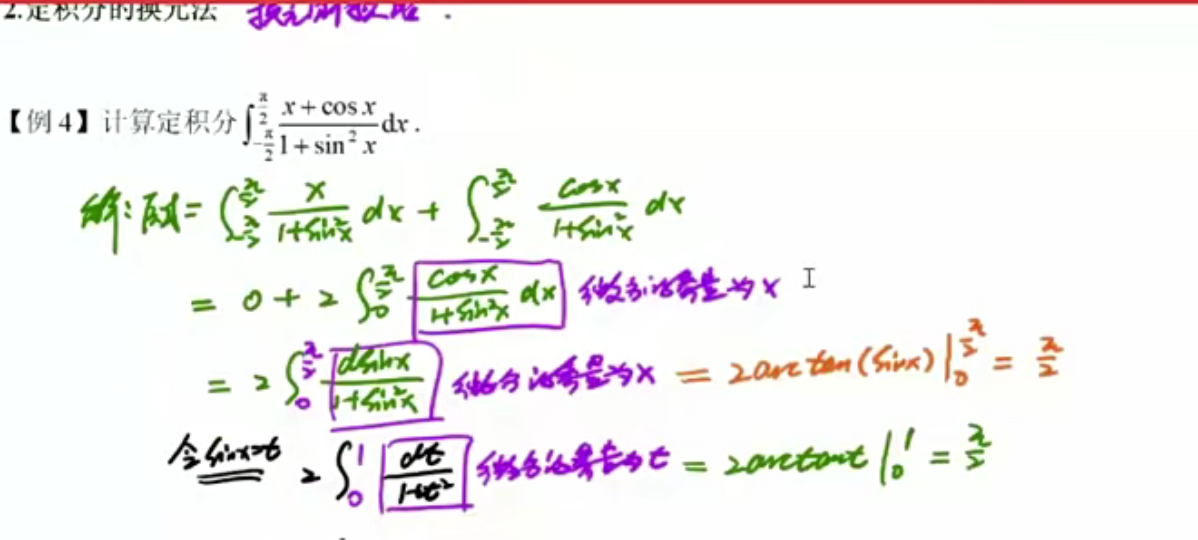 2.定积分的换元法 换元需换限.
【例 4】计算定积分∫_{-π/2}^{π/2} (x+cos x)/(1+sin² x) dx.
解:原式=∫_{-π/2}^{π/2} x/(1+sin²x) dx + ∫_{-π/2}^{π/2} cosx/(1+sin²x) dx
= 0 + 2∫_0^{π/2} cosx/(1+sin²x) dx 微分的变量为x
= 2∫_0^{π/2} dsinx/(1+sin²x) 微分的变量为x = 2arctan(sinx)|_0^{π/2} = π/2
令sinx=t 2∫_0^1 dt/(1+t²) 微分的变量为t = 2arctant|_0^1 = π/2